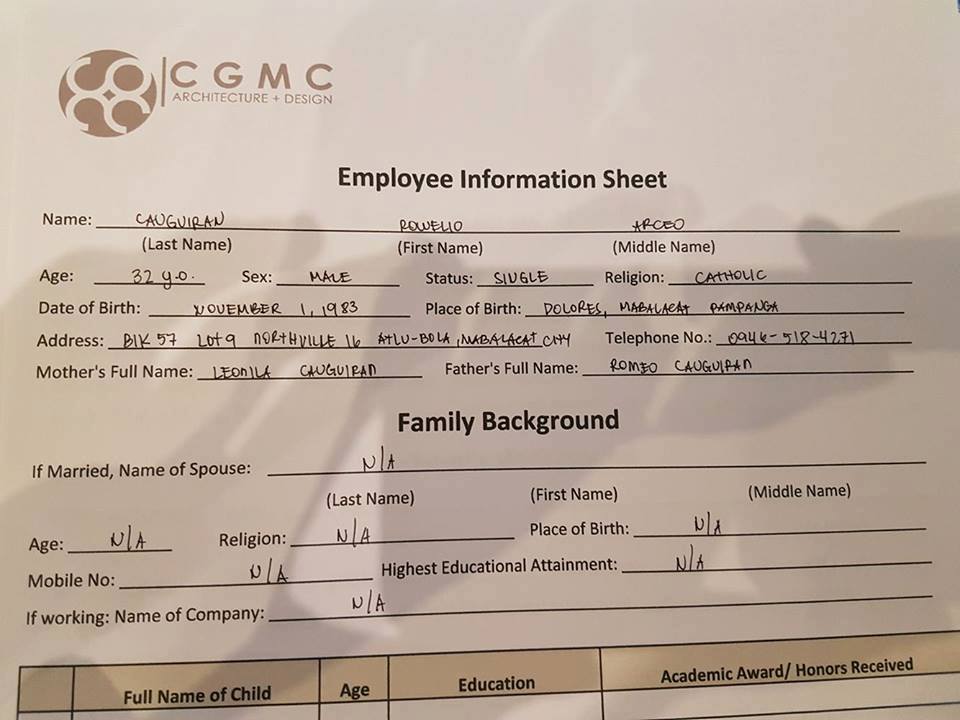 CGMC
ARCHITECTURE + DESIGN
Employee Information Sheet
Name: CAUGUIRAN ROWELIO ARCEO
(Last Name) (First Name) (Middle Name)
Age: 32 y.o. Sex: MALE Status: SINGLE Religion: CATHOLIC
Date of Birth: NOVEMBER 1, 1983 Place of Birth: DOLORES, MABALACAT PAMPANGA
Address: BlK 57 Lot 9 NORTHVILLE 16 ATLU-BOLA, MABALACAT CITY Telephone No.: 0946-518-4271
Mother's Full Name: LEONILA CAUGUIRAN Father's Full Name: ROMEO CAUGUIRAN
Family Background
If Married, Name of Spouse: N/A
(Last Name) (First Name) (Middle Name)
Age: N/A Religion: N/A Place of Birth: N/A
Mobile No: N/A Highest Educational Attainment: N/A
If working: Name of Company: N/A
Full Name of Child Age Education Academic Award/ Honors Received